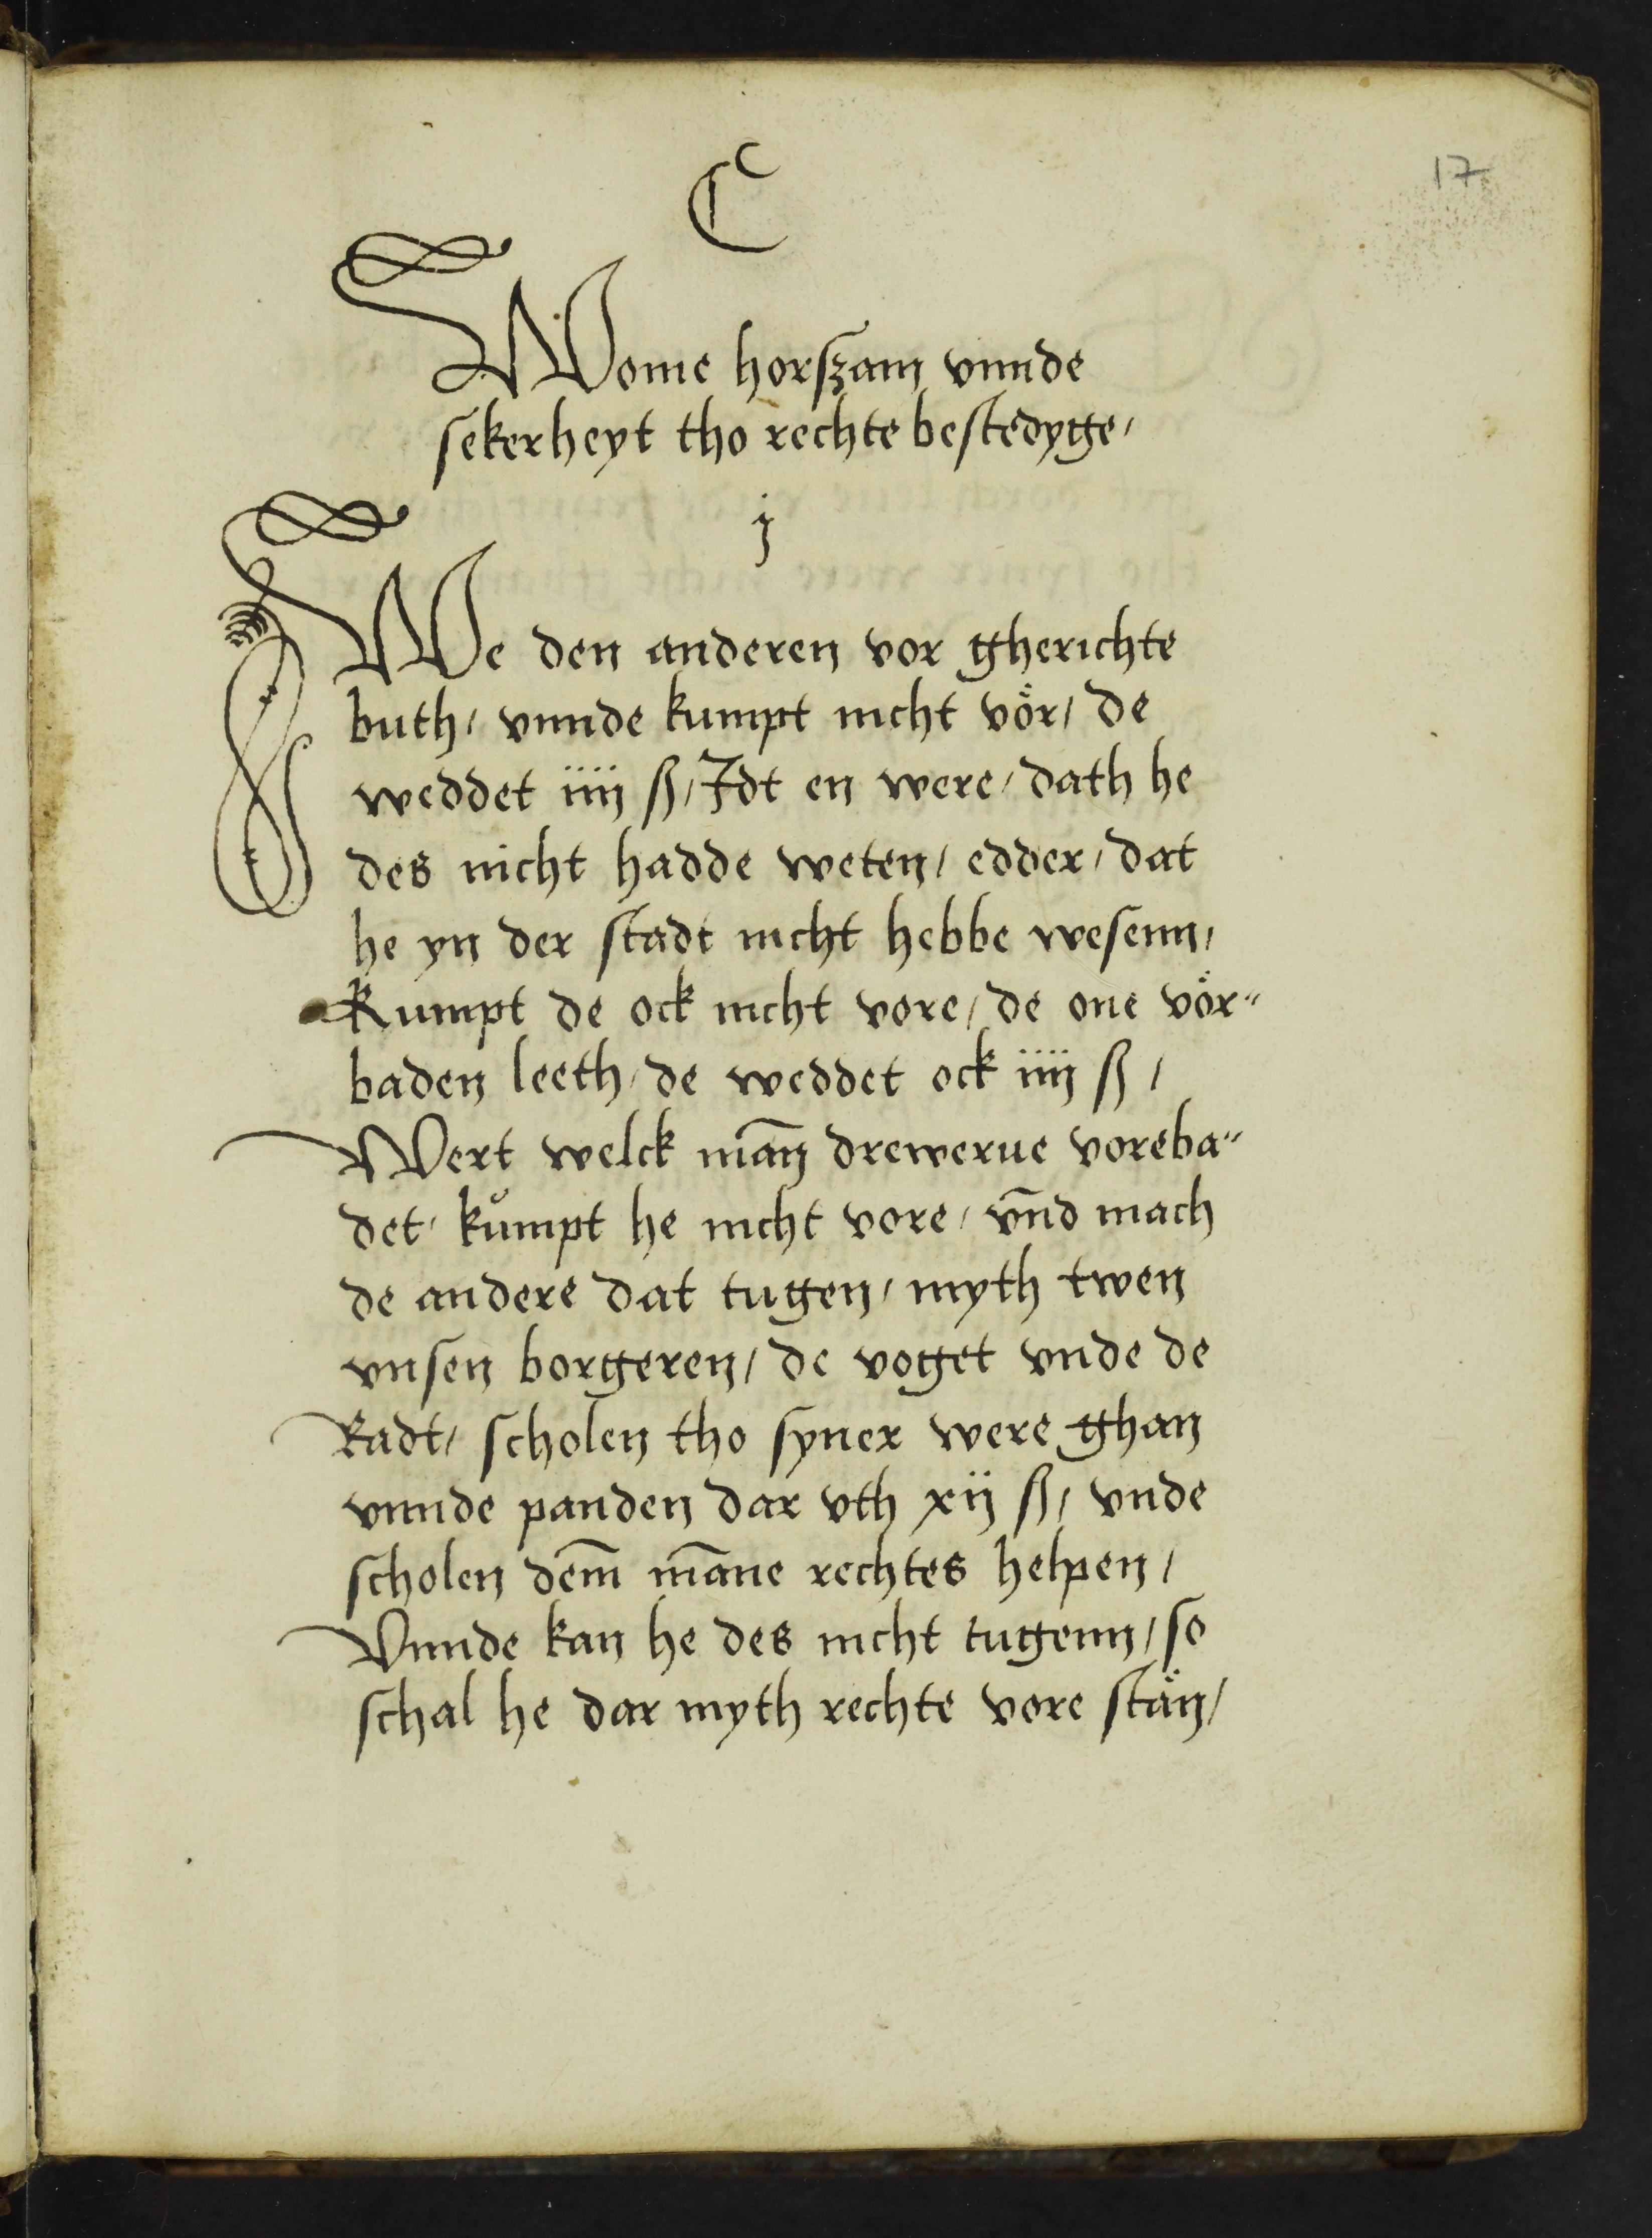 17
C
Wome horſzam vnnde
ſekerheyt tho rechte beſtedyge/
j
We den anderen vor gherichte
buth/ vnnde kumpt nicht vör/ de
weddet iiij ß/ Idt en were/ dath he
des nicht hadde weten/ edder/ dat
he yn der ſtadt nicht hebbe weſenn/
Kumpt de ock nicht vore/ de one vör"
baden leeth/ de weddet ock iiij ß/
Wert welck mā̄n drewerue voreba"
det/ kůmpt he nicht vore/ vn̄d mach
de andere dat tugen/ myth twen
vnſen borgeren/ de voget vnde de
Radt/ ſcholen tho ſyner were ghan
vnnde panden dar vth xij ß/ vnde
ſcholen dem̄ m̄ane rechtes helpen/
Vnnde kan he des nicht tugenn/ ſo
ſchal he dar myth rechte vore ſtän/